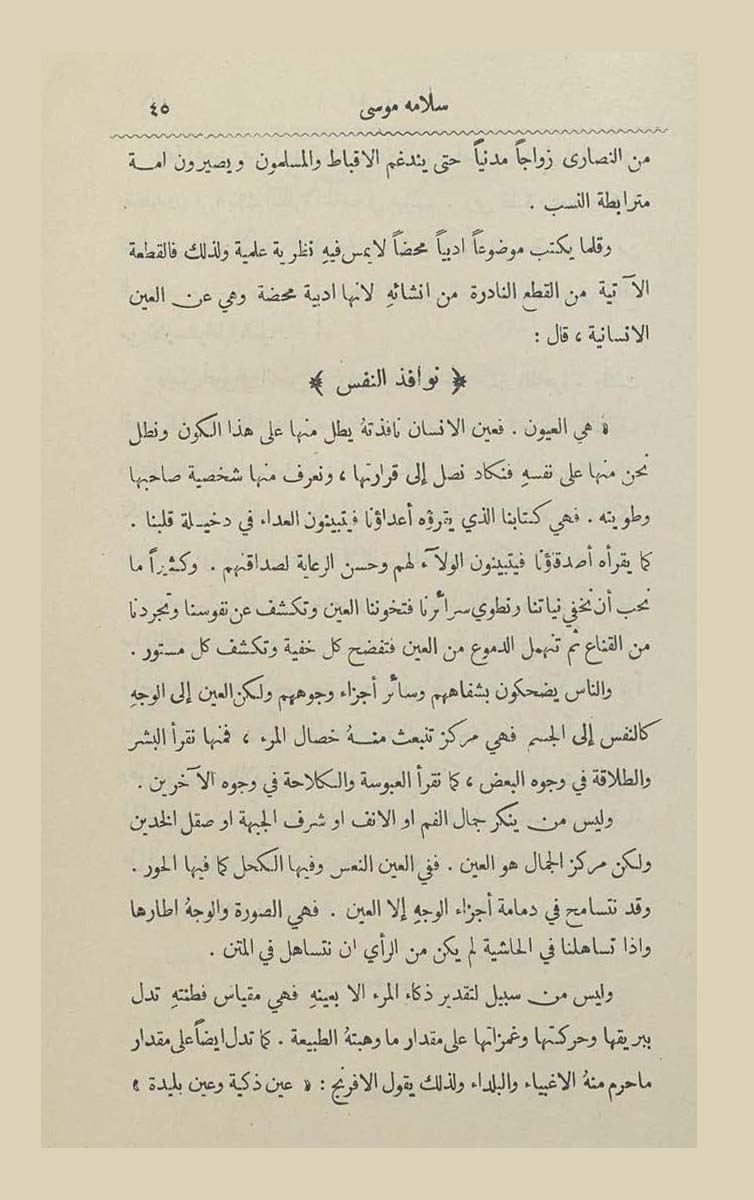 سلامه موسى ٤٥
من النصارى زواجاً مدنياً حتى يندغم الاقباط والمسلمون ويصيرون امة
مترابطة النسب .
وقلما يكتب موضوعاً ادبياً محضاً لا يمس فيهِ نظرية علمية ولذلك فالقطعة
الآتية من القطع النادرة من انشائهِ لانها ادبية محضة وهي عن العين
الانسانية ، قال :
﴿ نوافذ النفس ﴾
« هي العيون . فعين الانسان نافذتهُ يطل منها على هذا الكون ونطل
نحن منها على نفسهِ فنكاد نصل إلى قرارتها ، ونعرف منها شخصية صاحبها
وطويته . فهي كتابنا الذي يقرؤه أعداؤنا فيتبينون العداء في دخيلة قلبنا .
كما يقرأه أصدقاؤنا فيتبينون الولآء لهم وحسن الرعاية لصداقتهم . وكثيراً ما
نحب أن نخفي نياتنا ونطوي سرائرنا فتخوننا العين وتكشف عن نفوسنا وتجردنا
من القناع ثم تنهمل الدموع من العين فتفضح كل خفية وتكشف كل مستور .
والناس يضحكون بشفاههم وسائر أجزاء وجوههم ولكن العين إلى الوجهِ
كالنفس إلى الجسم فهي مركز تنبعث منهُ خصال المرء ، فمنها نقرأ البشر
والطلاقة في وجوه البعض ، كما نقرأ العبوسة والكلاحة في وجوه الآخرين .
وليس من ينكر جمال الفم او الانف او شرف الجبهة او صقل الخدين
ولكن مركز الجمال هو العين . ففي العين النعس وفيها الكحل كما فيها الحور .
وقد نتسامح في دمامة أجزاء الوجهِ إلا العين . فهي الصورة والوجهُ اطارها
واذا تساهلنا في الحاشية لم يكن من الرأي ان نتساهل في المتن .
وليس من سبيل لتقدير ذكاء المرء الا بعينهِ فهي مقياس فطنتهِ تدل
ببريقها وحركتها وغمزاتها على مقدار ما وهبتهُ الطبيعة . كما تدل ايضاً على مقدار
ماحرم منهُ الاغبياء والبلداء ولذلك يقول الافرنج : « عين ذكية وعين بليدة »